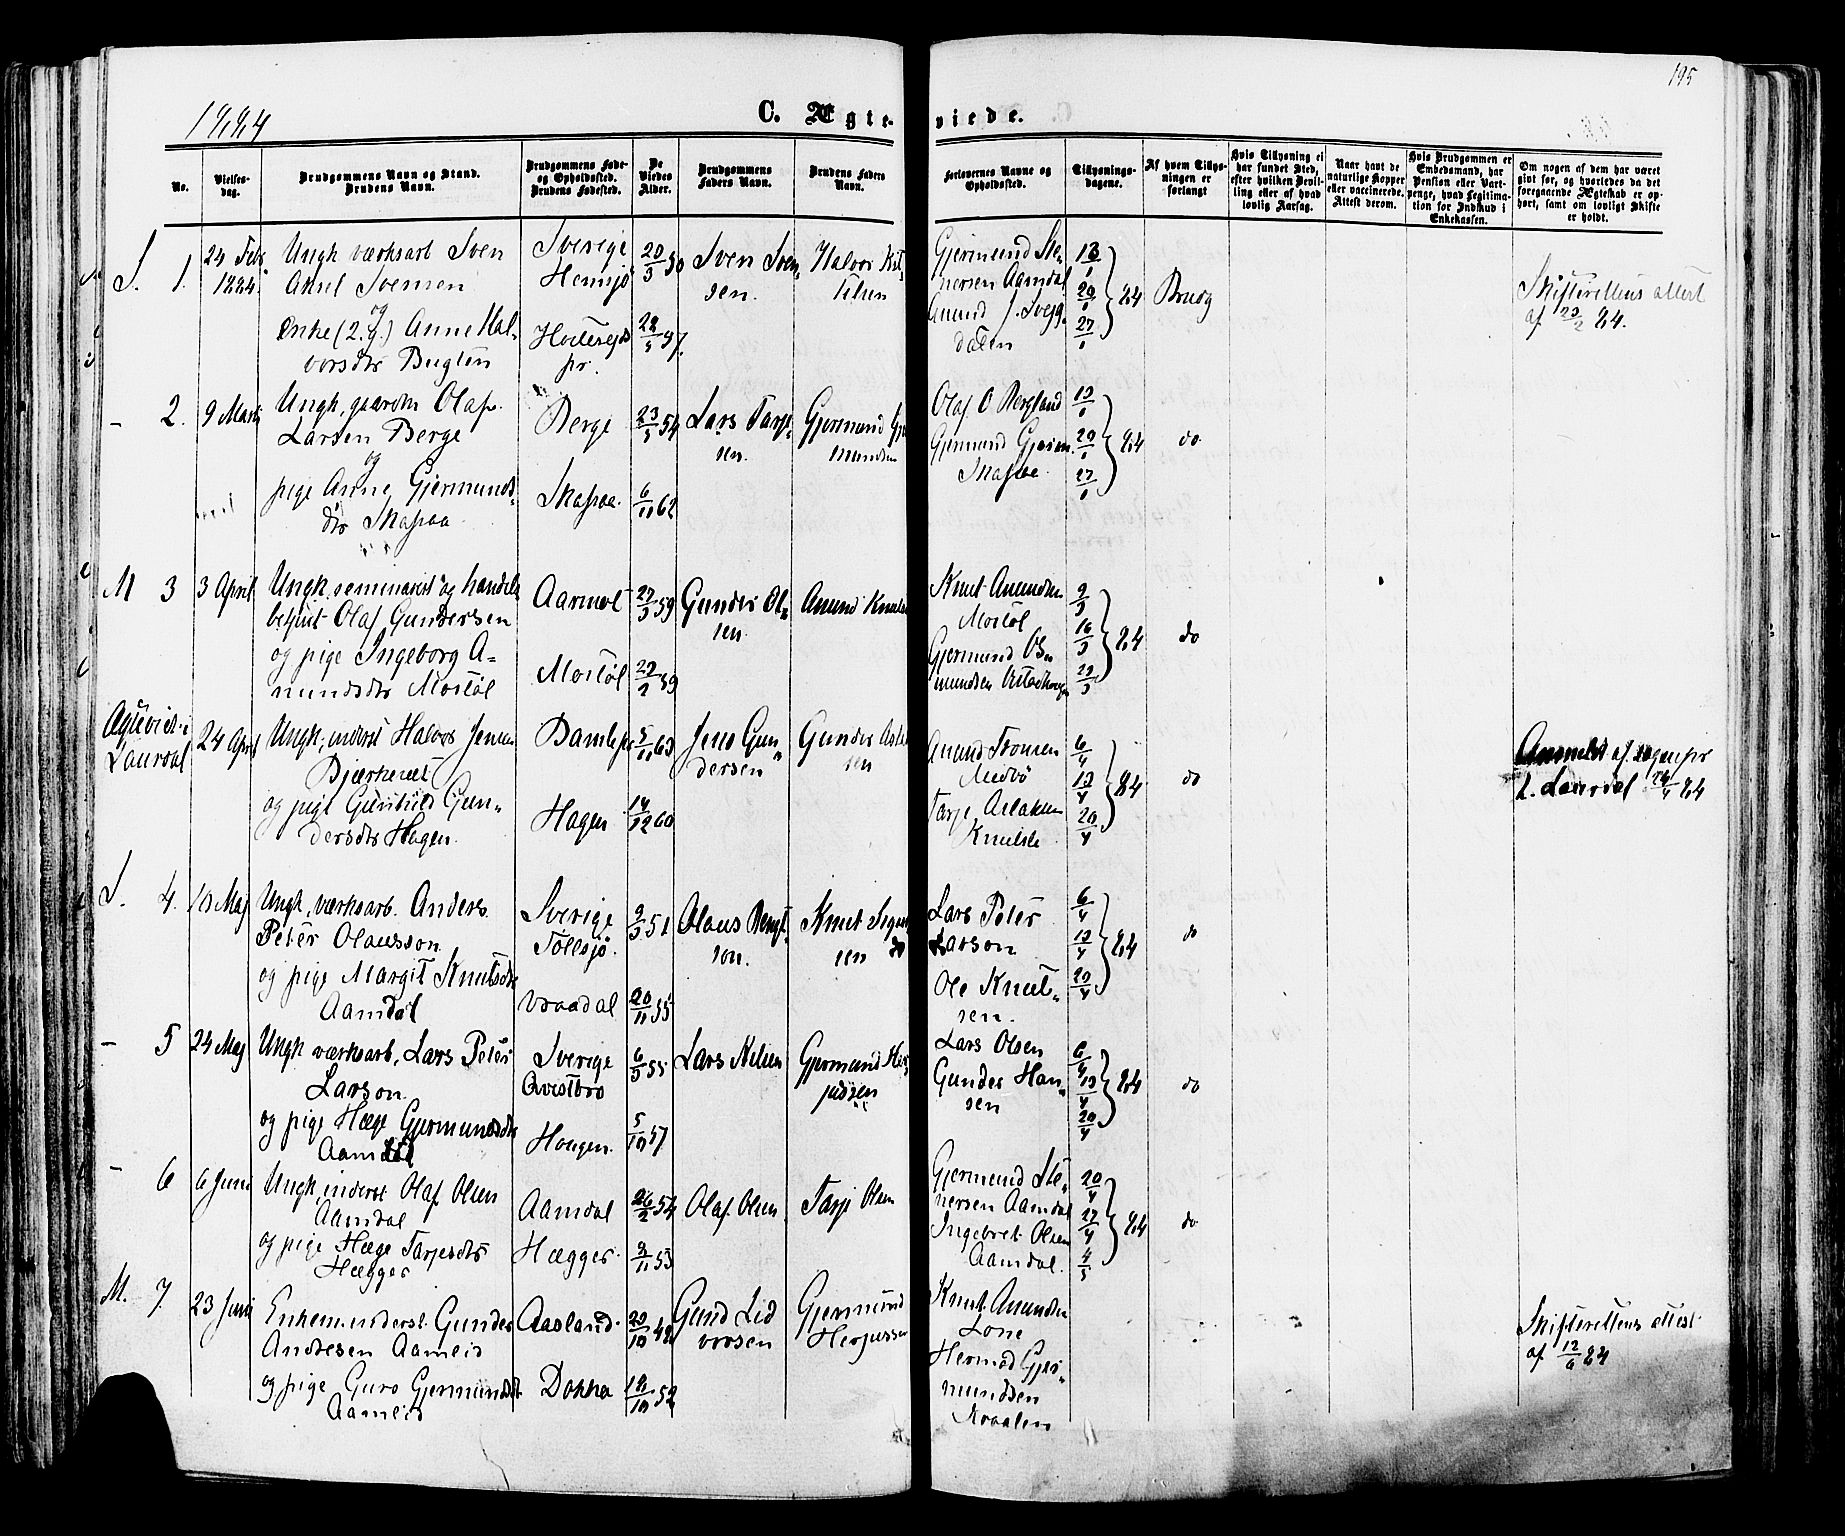 195
1884
C. Ægteviede.
No.
Vielses-
dag.
Brudgommens Navn og Stand.
Brudens Navn.
Brudgommens Føde-
og Opholdssted.
Brudens Fødested.
De
Viedes
Alder.
Brudgommens
Faders Navn.
Brudens Faders
Navn.
Forlovernes Navne og
Opholdssted.
Tillysnings-
dagene.
Af hvem Tillys-
ningen er
forlangt
Hvis Tillysning ei
har fundet Sted,
efter hvilken Bevil-
ling eller af hvad
lovlig Aarsag.
Naar havt de
naturlige Kopper
eller vaccinerede.
Attest derom.
Hvis Brudgommen er
Embedsmand, hvor
Pension eller Vart-
penge, hvad Legitima-
tion for Indskud i
Enkekassen.
Om nogen af dem har været
givt før, og hvorledes da det
foregaaende Ægteskab er op-
hørt, samt om lovligt Skifte
er holdt.
S. 1. 24 Febr 1884. Ungk værksarb Sven
Aksel Svensen
og
Enke (2. g.) Anne Hal-
vorsdtr Bugten
Sverige
Hemsjö
Hvitesejds
pr.
20/3 50
22/5 47.
Sven Sven-
sen.
Halvor Kit-
tilsen
Gjermund Ste-
nersen Aamdal
Anund J. Svejg-
dalen
13/1 20/1 27/1 84
Brudg
Skifterettens attest
af 23/2 84.
- 2. 9 Marts Ungk, gaardm Olaf
Larsen Berge
og
pige Anne Gjermunds-
dtr Skafsaa
Berge
Skafsaa.
23/5 54
6/11 62
Lars Tarje-
sen.
Gjermund Gjer-
mundsen
Olaf O Bergland
Gjermund Gjerm.
Skafsaa.
13/1 20/1 27/1 84
do
M 3 3 April Ungk, seminarist og handels
betjent Olaf Gundersen
og pige Ingeborg A-
nundsdtr Mostøl
Aarmot
Mostøl
27/3 59
29/2 59
Gunder Ol-
sen
Anund Knuts
Knut Anundsen
Mostøl
Gjermund Os-
mundsen
9/3 16/3 23/3 84
do
Ægteviet i
Laurdal
24 April Ungk, inderst Halvor Jensen
Bjørkenæs
og pige Gunhild Gun-
dersdtr Hagen.
Bamle pr
Hagen
5/11 60
14/12 60
Jens Gun-
dersen
Gunder Asla
sen
Anund Tronsen
Midbø
Tarje Aslaksen
6/4 13/4 20/4 84
do
Anmeldt af sognepr
i Laurdal 24/4 84
S. 4. 10 Maj Ungk, værksarb. Anders
Peter Olausson
og pige Margit Knutsdtr
Aamdal
Sverige
Töllsjö.
Vraadal
9/3 51
20/11 55
Olaus Bengt-
son.
Knut Sigurd
sen
Lars Peter
Larson
Ole Knut-
sen.
6/4 13/4 20/4 84
do
- 5 24 Maj Ungk værksarb, Lars Peter
Larson
og pige Hæge Gjermundsdtr
Aamdal
Sverige
Qvistbro
Haugen.
6/3 55
5/10 57
Lars Nilsen
Gjermund Her-
jusen
Lars Olsen
Gunder Han-
sen
6/4 13/4 20/4 84
do
- 6 6 Juni Ungk, inderst Olaf Olsen
Aamdal
og pige Hæge Tarjesdtr
Hægger
Aamdal
Hægger.
26/2 54
9/11 53
Olaf Olsen
Tarje Olsen
Gjermund Ste-
nersen Aamdal
Ingebret Olsen
Aamdal.
20/4 27/4 4/5 84
do
M. 7. 23 Juni Enkem. inderst. Gunder
Andresen Aamlid
og pige Guro Gjermundsdt
Aamlid
Aasland.
Dokka
20/10 42
18/10 52
Gund Lid
vorsen
Gjermund
Herjussen
Knut Anundsen
Lone
Hermod Gjer-
mundsen
Kraalen
Skifterettens attest
af 12/6 84